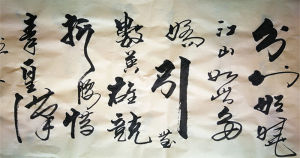 分外妖嬈
江山如此多
嬌引無
數英雄競
折腰惜
秦皇漢